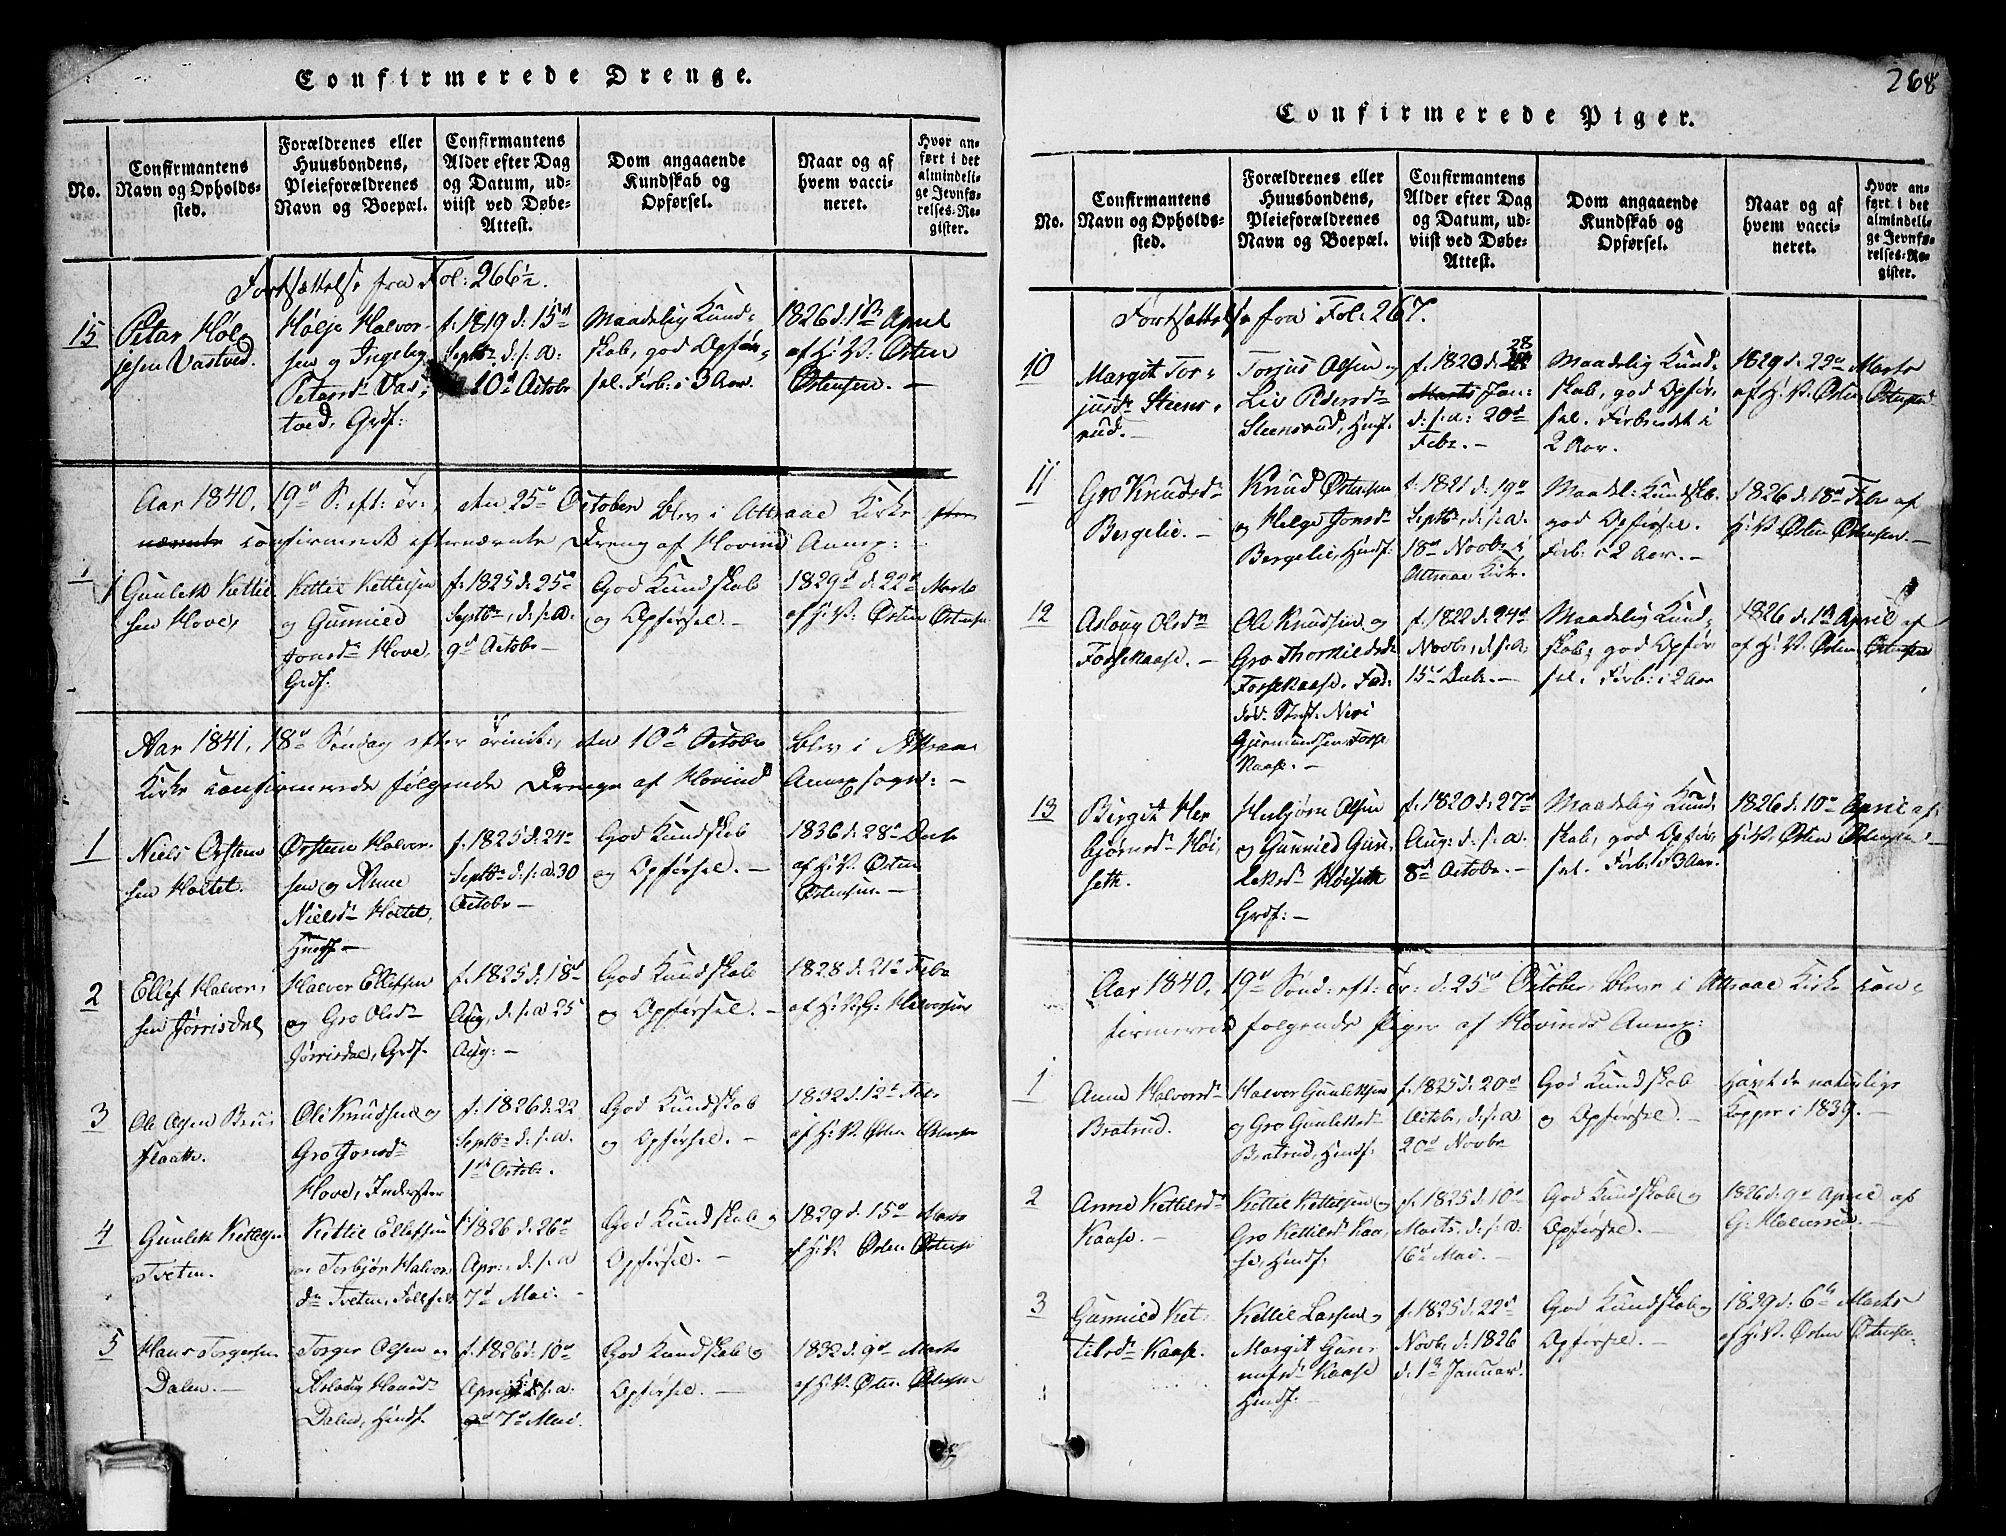 Confirmerede Drenge.
No.
Confirmantens
Navn og Opholds-
sted.
Forældrenes eller
Huusbondens,
Pleieforældrenes
Navn og Boepæl.
Confirmantens
Alder efter Dag
og Datum, ud-
viist ved Døbe-
Attest.
Dom angaaende
Kundskab og
Opførsel.
Naar og af
hvem vacci-
neret.
Hvor an-
ført i det
almindeli-
ge Jevnfø-
relses-Re-
gister.
Fortsættelse fra Fol: 266½.
15
Peter Høl-
jesen Vastved.
Hølje Halvor-
sen og Ingeb.
Petersd. Vas-
tved, Grdf:
f. 1819 d: 15d
Septbr. d. s. a:
10d Octobr
Maadelig Kund-
skab, god Opfør-
sel. Forb: i 3 Aar.
1826 d. 13 April
af H: P: Østen
Østensen. —
Aar 1840, 19d S: eft: Tr:, den 25d October blev i Attraae Kirke
confirmeret efternævnte Dreng af Hovind Annex:
1
Gunlek Kettil-
sen Hove,
Kettil Kettilsen
og Gunnild
Jonsd. Hove,
Grdf:
f. 1825 d: 25d
Septbr., d. s. a.
9d Octobr —
God Kundskab
og Opførsel. —
1829 d. 22d Marts
af H: P: Østen Østensen
Aar 1841, 18d Søndag efter Trinit:, den 10d Octobr blev i Attraae
Kirke confirmerede følgende Drenge af Hovind Annexsogn: —
1
Niels Østen-
sen Holtet.
Østen Halvor-
sen og Anne
Nielsd. Holtet,
Huusf. —
f. 1825 d. 24d
Septbr. d. s. a. 30
Octobr —
God Kundskab
og Opførsel. —
1836 d: 28d Decb.
af H: P: Østen
Østensen. —
2
Ellef Halvor-
sen Jørrisdal
Halvor Ellefsen
og Gro Olsd.
Jørrisdal, Grdf.
f. 1825 d: 18d
Aug., d. s. a. 25
Aug: —
God Kundskab
og Opførsel. —
1828 d. 21d Febr
af H: P: G: Halvorsen
3
Ole Olsen Brus-
flaatte.
Ole Knudsen og
Gro Jonsd.
Hove, Inderster
f. 1826 d. 22
Septbr d. s. a.
1st Octobr.
God Kundskab
og Opførsel. —
1832 d. 12d Febr
af H: P: Østen Østensen
4
Gunlek Kettilsen
Tveten.
Kettil Ellefsen
og Torbjør Halvors-
dr. Tveten,
f. 1826 d. 26d
Apr:, d. s. a
7d Mai. —
God Kundskab og
Opførsel. —
1829 d. 15d Marts
af H: P: Østen Østensen
5
Hans Torgersen
Dalen. —
Torger Olsen og
Aslaug Hansd.
Dalen, Huusf.
f. 1826 d. 10d
April d. s. a.
7d Mai.
God Kundskab og
Opførsel. —
1832 d. 9d Marts
af H: P: Østen Østensen
268
Confirmerede Piger.
No.
Confirmantens
Navn og Opholds-
sted.
Forældrenes eller
Huusbondens,
Pleieforældrenes
Navn og Boepæl.
Confirmantens
Alder efter Dag
og Datum, ud-
viist ved Døbe-
Attest.
Dom angaaende
Kundskab og
Opførsel.
Naar og af
hvem vacci-
neret.
Hvor an-
ført i det
almindeli-
ge Jevnfø-
relses-Re-
gister.
Fortsættelse fra Fol: 267.
10
Margit Tor-
jusd. Steens-
rud. —
Torjus Olsen og
Liv Pedersd.
Steensrud, Huusf.
f. 1820 d. 28
Marts Jan:
d. s. a: 20d
Febr. —
Maadelig Kund-
skab, god Opfør-
sel. Forbredet i
2 Aar.
1829 d. 22d Marts
af H: P: Østen Østensen
11
Gro Knudsd.
Bergelie. —
Knud Østensen
og Helge Jonsd.
Bergelie, Huusf:
f. 1821 d: 19d
Septbr, d. s. a.
18d Novbr i
Attraae Kirke.
Maadel: Kundsk:
god Opførsel.
Forb: i 2 Aar. —
1826 d: 18d Febr af
H: P: Østen Østensen. —
12
Aslaug Olsd.
Forsekaase. —
Ole Knudsen og
Gro Thorkildsd.
Forsekaase,
Gjermundsen Forse-
kaase. —
f. 1822 d: 24d
Novbr, d. s. a
15d Decb. —
Maadelig Kund-
skab, god Opfør-
sel. Forb: i 2 Aar
1826 d. 13 April af
af H: P: Østen Østensen
13
Birgit Her-
bjørnsd. Høi-
seth.
Herbjørn Olsen
og Gunnild Gun-
leksd. Høiseth
Grdf: —
f. 1820 d: 27d
Aug: d. s. a.
8d Octobr. —
Maadelig Kund-
skab, god Opfør-
sel. Forb: i 3 Aar.
1826 d: 10d April af
H: P: Østen Østensen —
Aar 1840, 19d Sønd: eft: Tr: d: 25d October, bleve i Attraae Kirke con-
firmerede følgende Piger af Hovinds Annex:
1
Anne Halvorsd.
Bratrud.
Halvor Gunleksen
og Gro Gunleksd.
Bratrud, Huusf:
f. 1825 d: 20d
Octobr, d. s. a
20d Novbr
God Kundskab
og Opførsel. —
Havt de naturlige
Kopper i 1839.
2
Anne Kettilsd.
Kaase. —
Kettil Kettilsen og
Gro Kettilsd. Kaa-
se, Huusf:
f. 1825 d: 10d
Marts, d. s. a:
16d Mai. —
God Kundskab og
Opførsel. —
1826 d. 9d April af
G: Halvorsen. —
3
Gunnild Ket-
tilsd. Kaase.
Kettil Larsen og
Margit Gun-
nufsd. Kaase
Huusf. —
f. 1825 d: 22d
Novb. d: 1826
d. 1st Januar.
God Kundskab og
Opførsel. —
1829 d: 6te Marts
af H: P: Østen Østensen